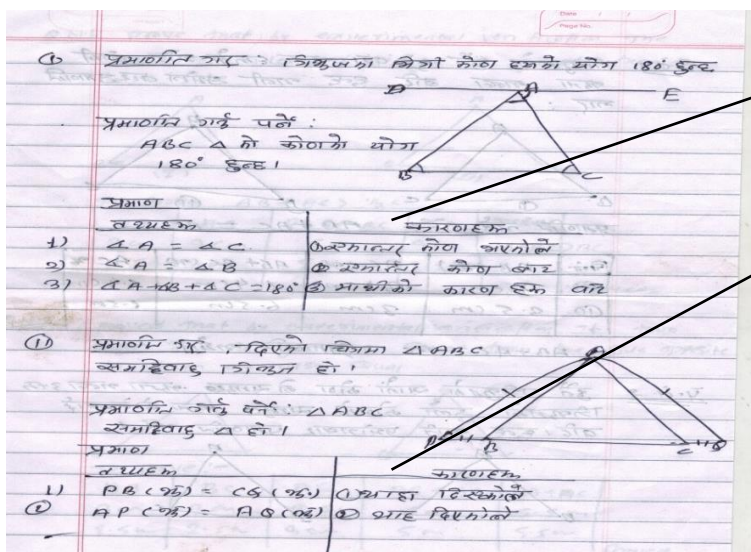 Date
Page No.
① प्रमाणित गर्नु : त्रिभुजका भित्री कोण हरूको योग 180° हुन्छ
D A E
प्रमाणित गर्नु पर्ने :
ABC △ को कोणको योग
180° हुन्छ।
B C
प्रमाण
तथ्यहरू कारणहरू
1) ∠A = ∠C ① कोण भएकोले
2) ∠A = ∠B ② कोण बाट
3) ∠A+∠B+∠C=180° ③ माथीको कारण हरू बाट
⑪ प्रमाणित गर्नु , दिएको चित्रमा △ABC
समद्विबाहु त्रिभुज हो।
A
प्रमाणित गर्नु पर्ने : △ABC
समद्विबाहु △ हो।
P B C Q
प्रमाण
तथ्यहरू कारणहरू
1) PB (भु) = CQ (भु) ① थाहा दिएकोले
② AP (भु) = AQ (भु) ② थाह दिएकोले